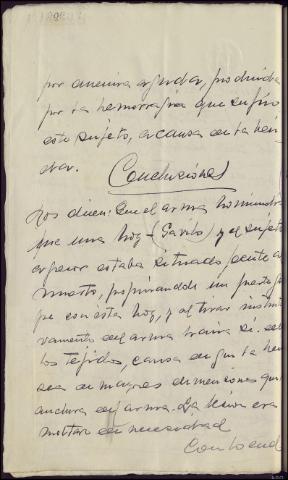 por anemia aguda, producida
por la hemorragia que sufrió
este sujeto, a causa de la heri
das.
Conclusiones
Nos dicen: Que el arma
que una hoz - y el sujeto
agresor estaba situado frente al
muerto, propinándole un
pe con esta hoz, y al tirar
vamente del arma hacia sí
los tejidos, causa de que la he
sea de mayores dimensiones que
anchura del arma. La lesión era
mortal de necesidad